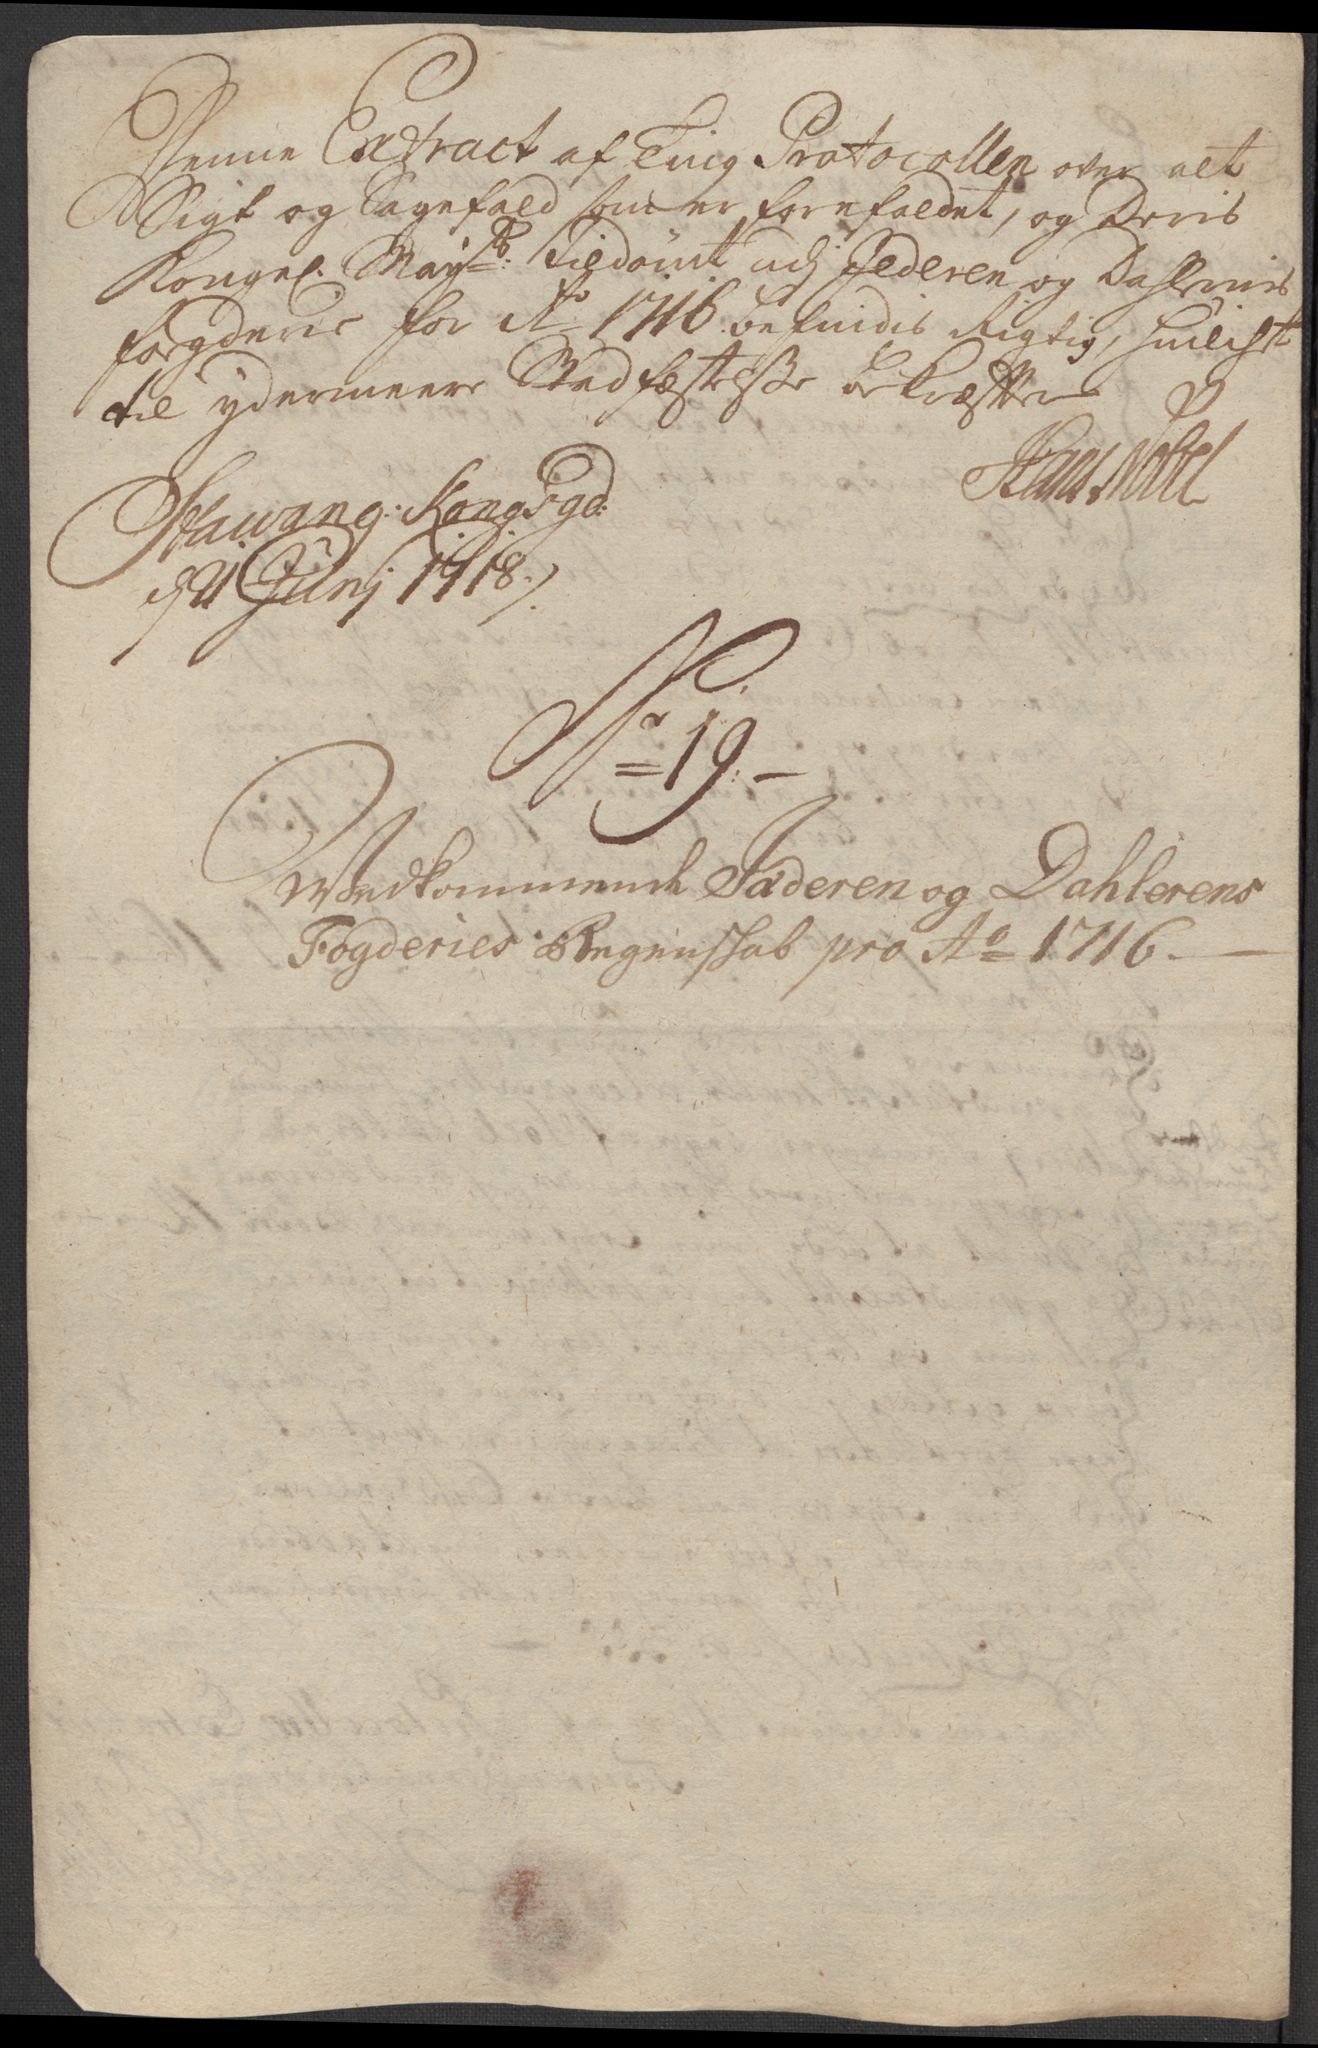 Denne Extract af Ting Protocollen over alt
Sigt og Sagefald som er forefaldet, og Deris
Kongel. Mayts: Tildømt udj Jederen og Dahlernis
fogderie for Ao 1716 befindis Rigtig, huilchet
til ydermeere Stadfæstelsse bekræfter
Hans Nobel
Stawang: Kongsgd:
d 21 Junj 1718 ./.
No 19.
Wedkommende Jæderen og Dahlerens
Fogderies Regenskab pro Ao 1716.